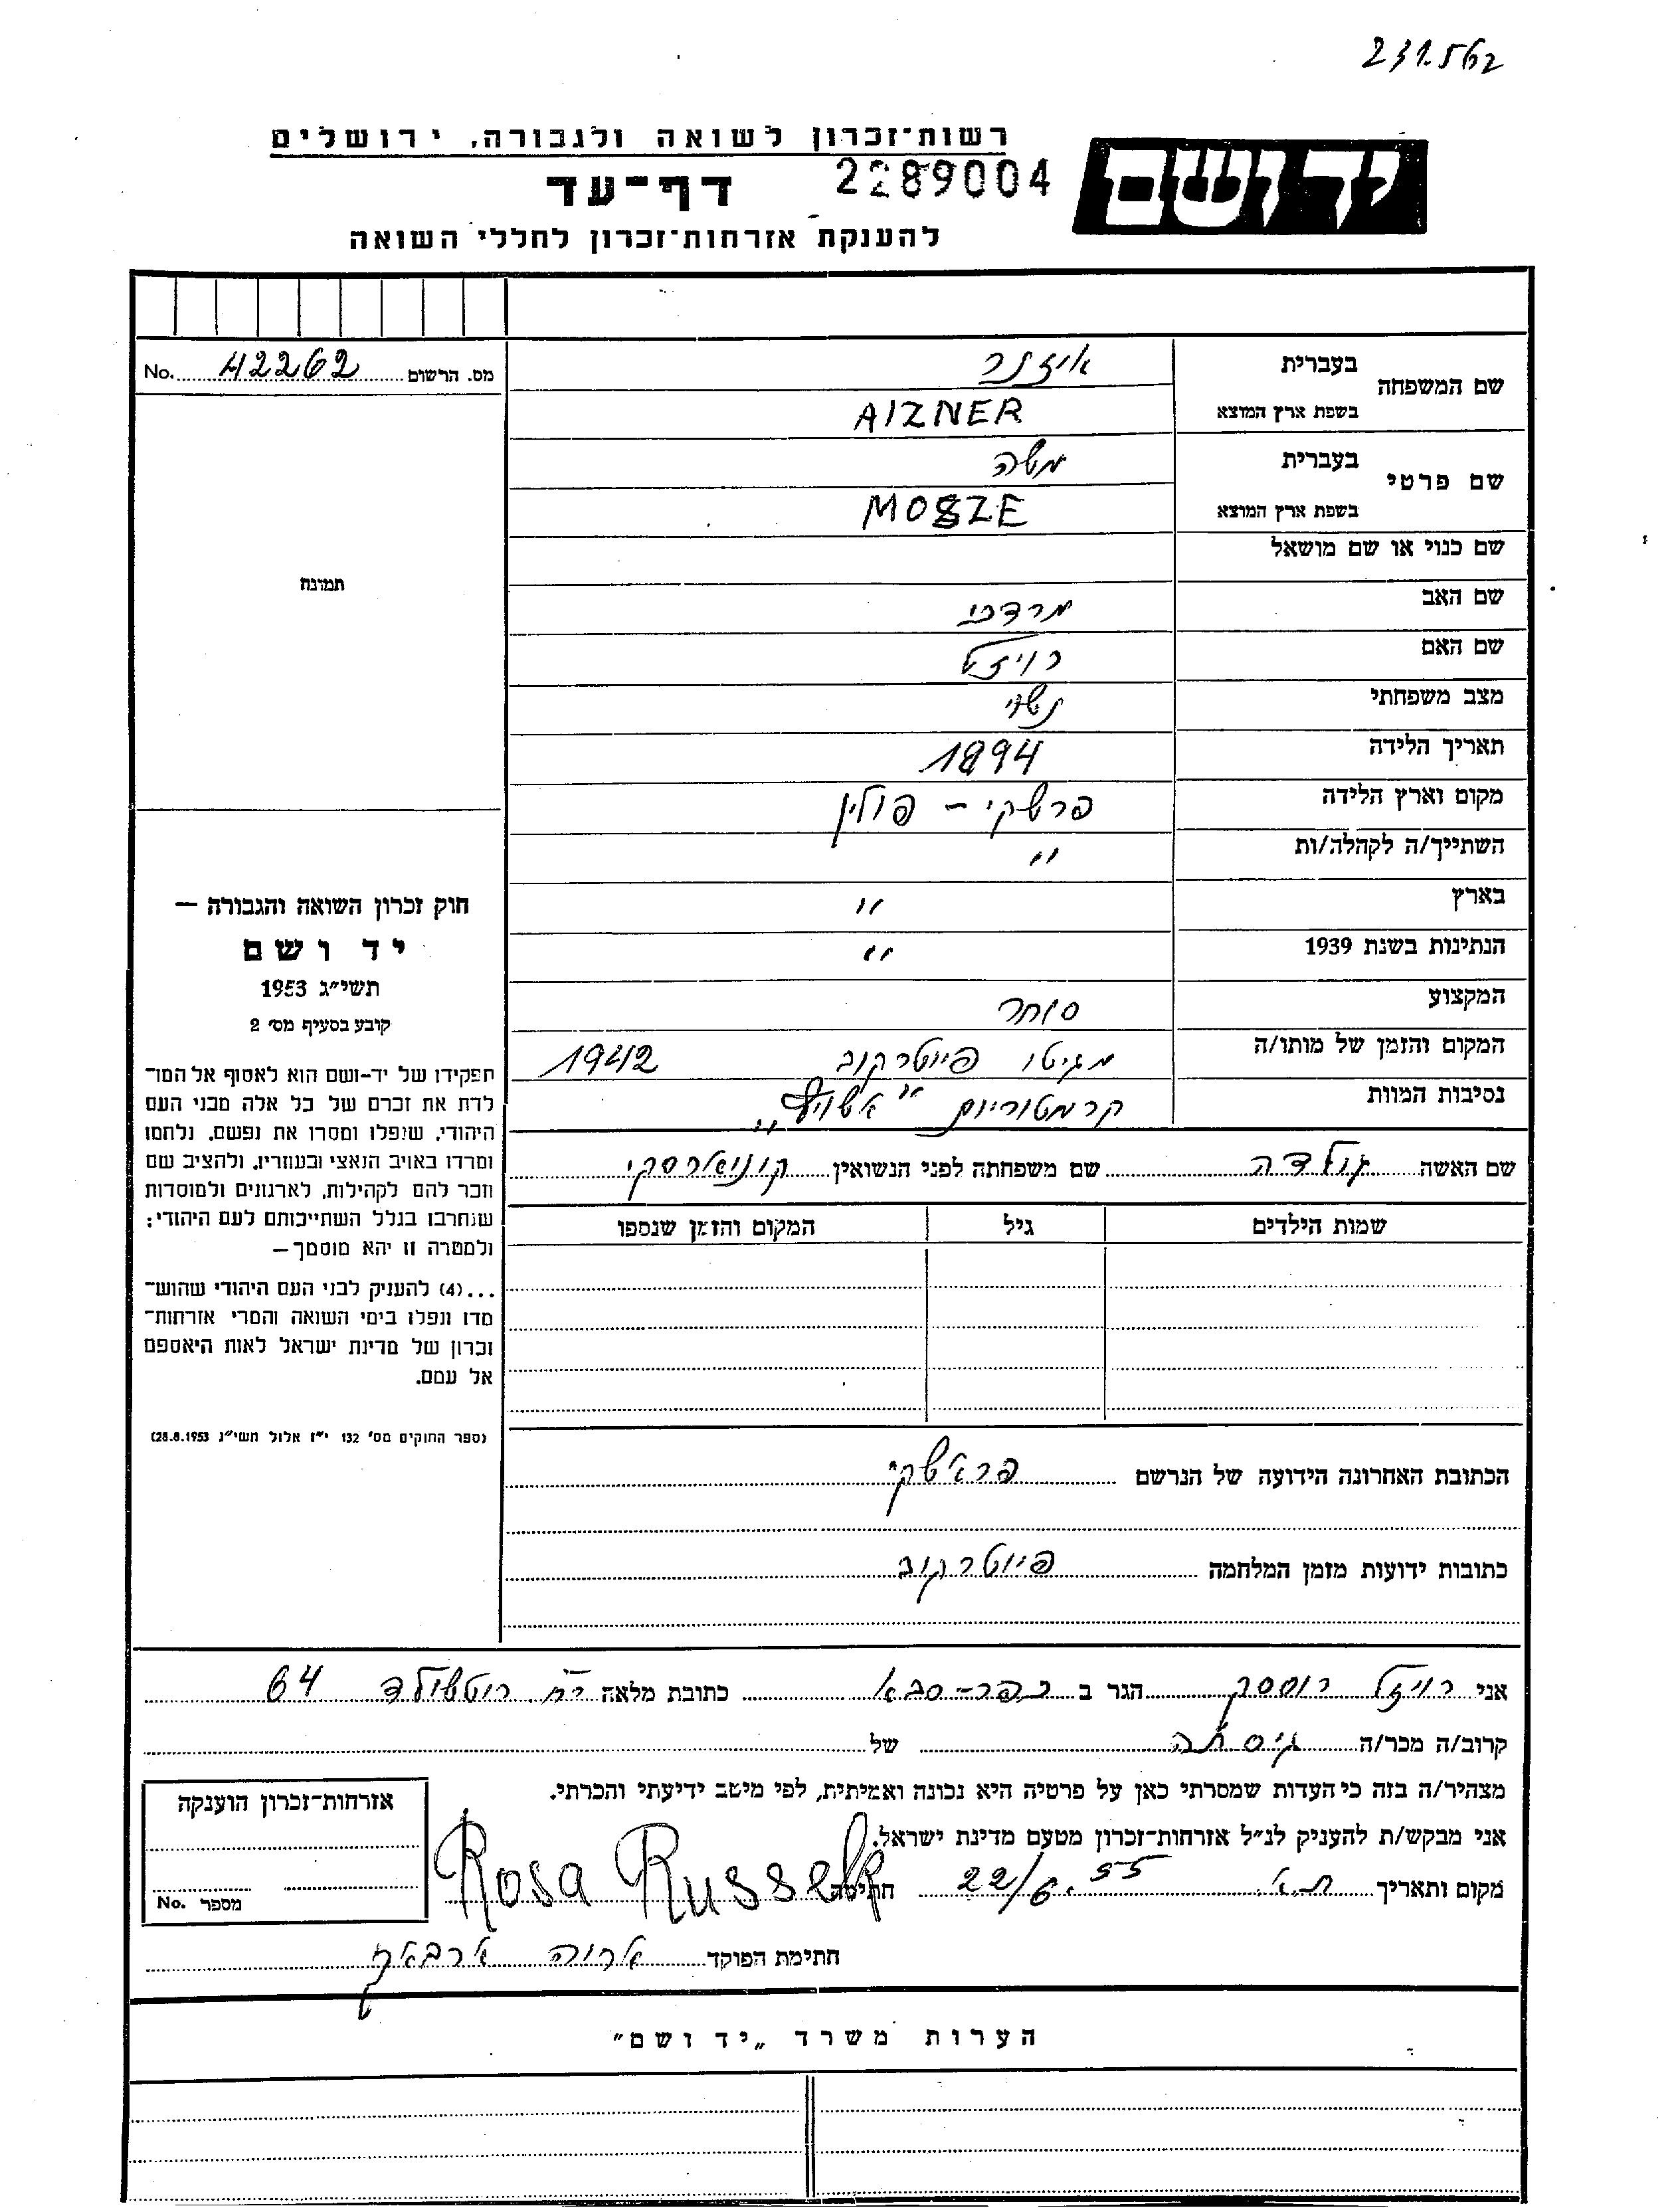 231.562
רשות־זכרון לשואה ולגבורה, ירושלים
יד ושם
2289004
דף־עד
להענקת אזרחות־זכרון לחללי השואה
מס. הרשום 42262 No.
שם המשפחה
בעברית איזנר
בשפת ארץ המוצא AIZNER
שם פרטי
בעברית משה
בשפת ארץ המוצא MOSZE
שם כנוי או שם מושאל
שם האב מרדכי
שם האם רויזל
מצב משפחתי נשוי
תאריך הלידה 1894
מקום וארץ הלידה פרשקי - פולין
השתייך/ה לקהלה/ות "
בארץ "
הנתינות בשנת 1939 "
המקצוע סוחר
המקום והזמן של מותו/ה מגיטו פיוטרקוב 1942
נסיבות המוות קרמטוריום
שם האשה גולדה שם משפחתה לפני הנשואין
שמות הילדים גיל המקום והזמן שנספו
הכתובת האחרונה הידועה של הנרשם פראשקי
כתובות ידועות מזמן המלחמה פיוטרקוב
תמונה
חוק זכרון השואה והגבורה —
יד ושם
תשי״ג 1953
קובע בסעיף מס׳ 2
תפקידו של יד-ושם הוא לאסוף אל המו־
לדת את זכרם של כל אלה מבני העם
היהודי, שנפלו ומסרו את נפשם, נלחמו
ומרדו באויב הנאצי ובעוזריו, ולהציב שם
וזכר להם לקהילות, לארגונים ולמוסדות
שנחרבו בגלל השתייכותם לעם היהודי;
ולמטרה זו יהא מוסמך—
...(4) להעניק לבני העם היהודי שהוש־
מדו ונפלו בימי השואה והמרי אזרחות־
זכרון של מדינת ישראל לאות היאספם
אל עמם.
(ספר החוקים מס׳ 132 י״ז אלול תשי״ג 28.8.1953)
אני רויזל רוססק הגר ב כפר-סבא כתובת מלאה רח. רוטשילד 64
קרוב/ה מכר/ה גיסתה של
מצהיר/ה בזה כי העדות שמסרתי כאן על פרטיה היא נכונה ואמיתית, לפי מיטב ידיעתי והכרתי.
אני מבקש/ת להעניק לנ״ל אזרחות־זכרון מטעם מדינת ישראל.
מקום ותאריך ת.א. 22/6.55 חתימה Rosa Russek
אזרחות־זכרון הוענקה
מספר No.
חתימת הפוקד
הערות משרד „יד ושם״